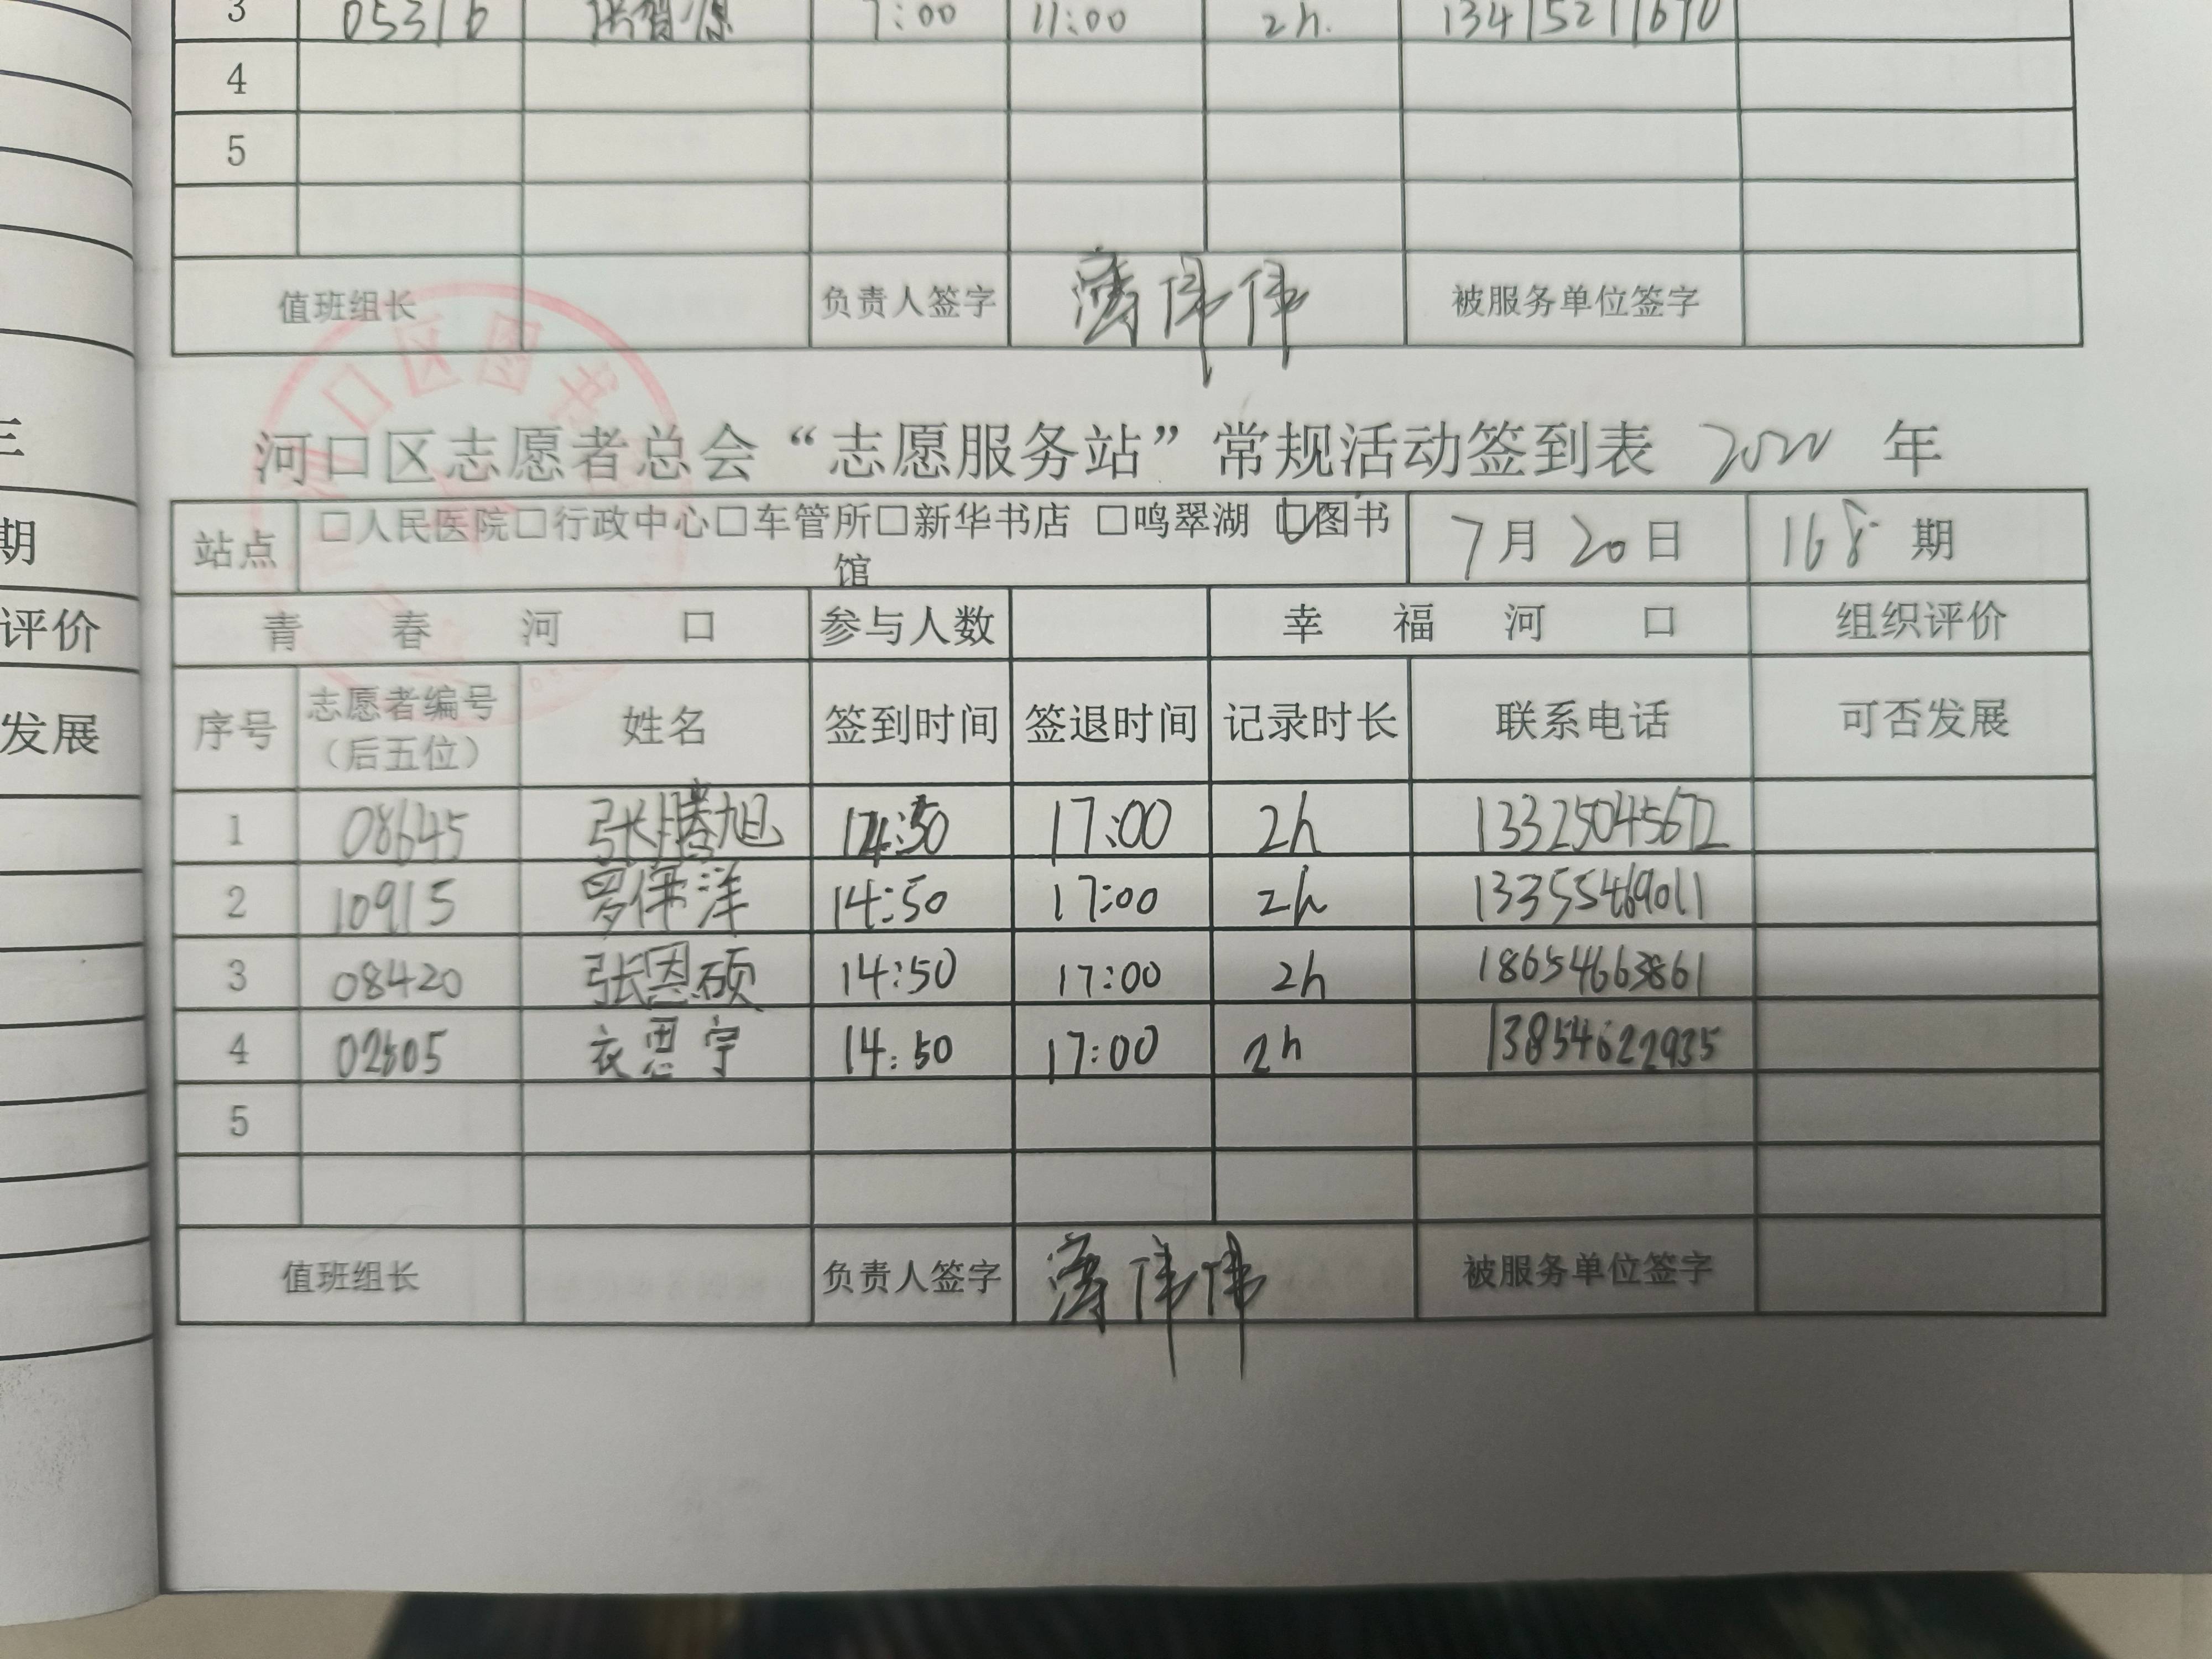 3 05316 7:00 11:00 2h.
4
5
值班组长 负责人签字 被服务单位签字
口区图书
河口区志愿者总会“志愿服务站”常规活动签到表 年
站点 □人民医院□行政中心□车管所□新华书店 □鸣翠湖 ☑图书馆 7月20日 168期
青春河口 参与人数 幸福河口 组织评价
序号 志愿者编号（后五位） 姓名 签到时间 签退时间 记录时长 联系电话 可否发展
1 08645 张腾旭 14:50 17:00 2h 13325045672
2 10915 罗伟洋 14:50 17:00 2h 13355469011
3 08420 张恩硕 14:50 17:00 2h 18654663861
4 衣思宇 14:50 17:00 2h 13854622935
5
值班组长 负责人签字 被服务单位签字
三
期
评价
发展